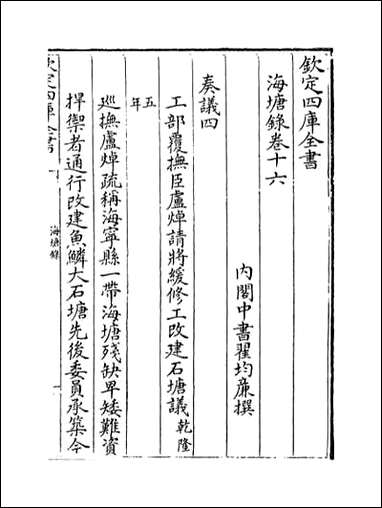 欽定四庫全書
海塘錄卷十六
內閣中書翟均廉撰
奏議四
工部覆撫臣盧焯請將緩修工改建石塘議乾隆
五年
巡撫盧焯疏稱海寧縣一帶海塘殘缺卑矮難資
捍禦者通行改建魚鱗大石塘先後委員承築今
欽定四庫全書
海塘錄